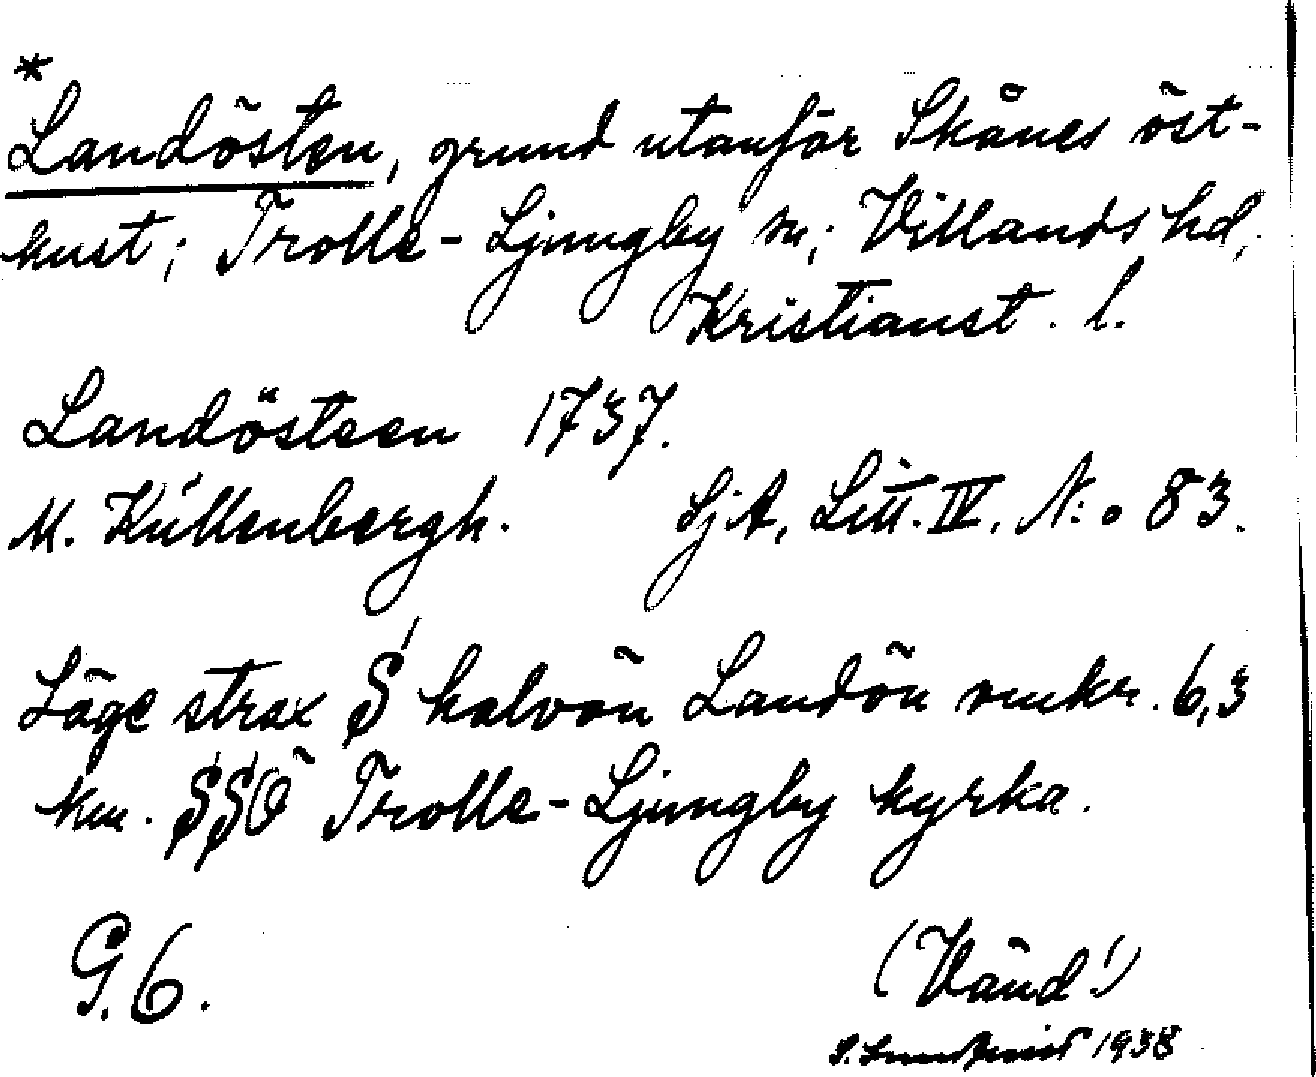 *
Landösten, grund utanför Skånes öst-
kust; Trolle-Ljungby sn; Villands hd,
Kristianst. l.
Landösteen 1737.
M. Küllenbergh. SjA, Litt. IV. N:o 83.
Läge strax S halvön Landön omkr. 6,3
km. SSÖ Trolle-Ljungby kyrka.
G. 6.
(Vänd!)
1938